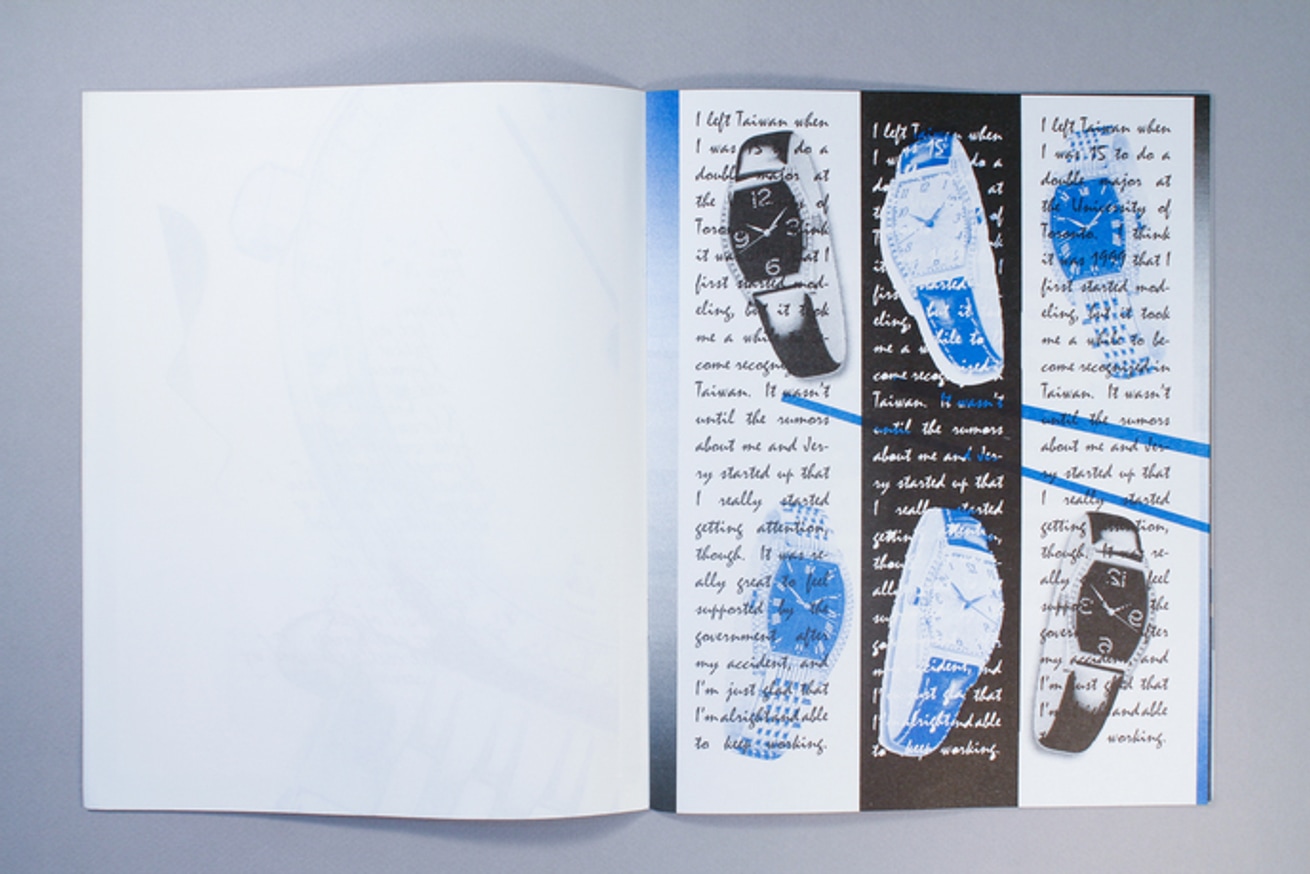 I left Taiwan when
I was 15 to do a
double major at
the of
Toronto. think
it was that I
first started mod-
eling, but it took
me a while
come recogn
Taiwan. It wasn't
until the rumors
about me and Jer-
ry started up that
I really started
getting attention,
though. It was re-
ally great to feel
supported by the
government after
my accident, and
I'm just glad that
I'm alright and able
to keep working.
12
9 3
6
I left Taiwan when
I was 15 do a
at
of
first started
eling, but it
me a while to
come recognized
Taiwan. It wasn't
until the rumors
about me and Jer-
ry started up that
I really started
getting attention,
my accident, and
I'm just glad that
I'm alright and able
to keep working.
I left Taiwan when
I was 15 to do a
double major at
the University of
Toronto. I think
it was 1999 that I
first started mod-
eling, but it took
me a while to be-
come recognized in
Taiwan. It wasn't
until the rumors
about me and Jer-
ry started up that
I really started
getting attention,
though. It was re-
ally feel
supp the
gover after
my accident, and
I'm just glad that
I'm and able
working.